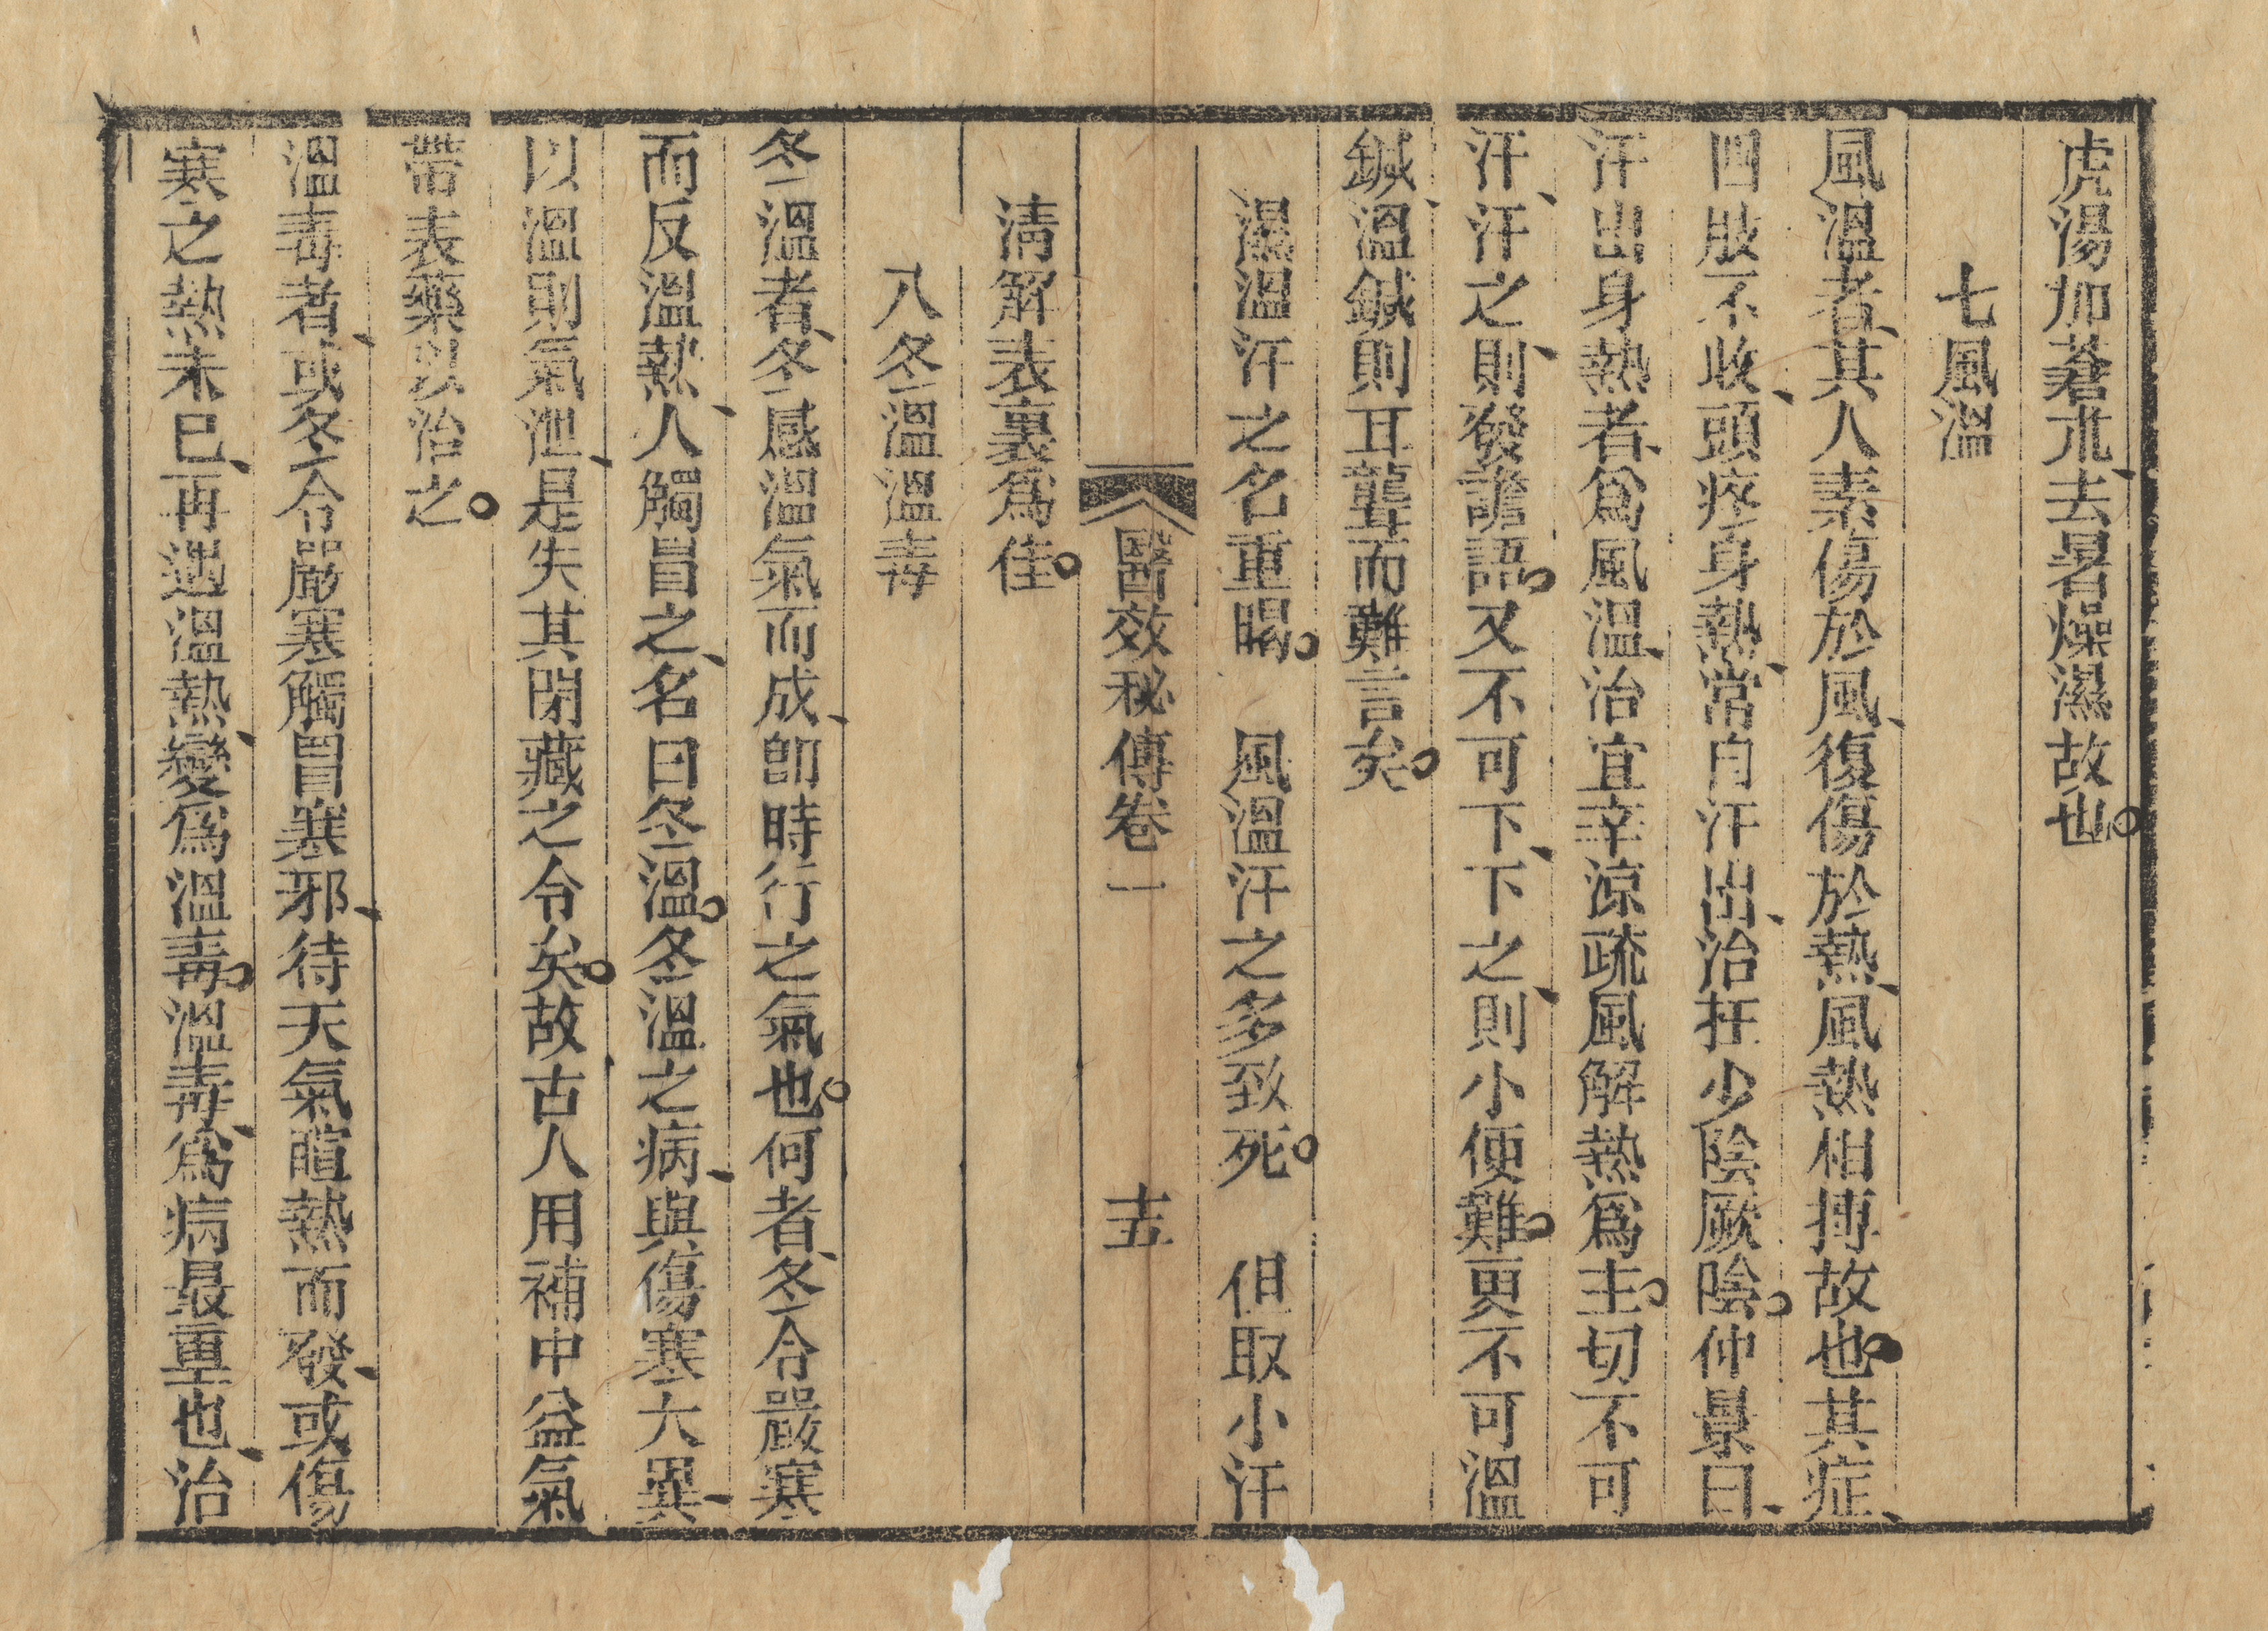 虎湯加蒼朮、去暑燥濕故也。
七風溫
風溫者、其人素傷於風、復傷於熱、風熱相搏故也。其症、
四肢不收、頭疼身熱、常自汗出、治在少陰厥陰。仲景曰、
汗出身熱者、爲風溫、治宜辛涼疏風解熱爲主。切不可
汗、汗之、則發譫語。又不可下、下之、則小便難。更不可溫
鍼、溫鍼則耳聾而難言矣。
濕溫汗之名重暍。 風溫汗之多致死。 但取小汗
醫效秘傳卷一 十五
清解表裏爲佳。
八冬溫溫毒
冬溫者、冬感溫氣而成、卽時行之氣也。何者、冬令嚴寒
而反溫熱、人觸冒之、名曰冬溫。冬溫之病、與傷寒大異、
以溫則氣泄、是失其閉藏之令矣。故古人用補中益氣
帶表藥以治之。
溫毒者、或冬令嚴寒觸冒寒邪、待天氣暄熱而發、或傷
寒之熱未已、再遇溫熱、變爲溫毒。溫毒、爲病最重也、治